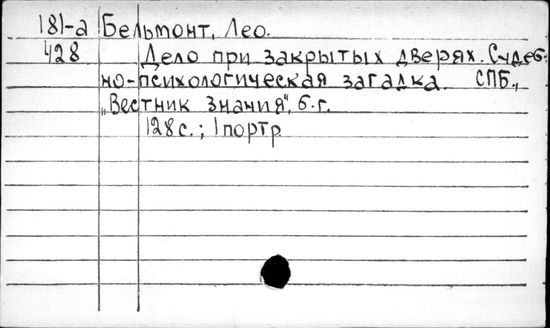 181-а Бельмонт, Лео.
428 Дело при закрытых дверях. Судеб-
но-психологическая загадка. СПБ.,
„Вестник Знания", б.г.
128с.; 1портр